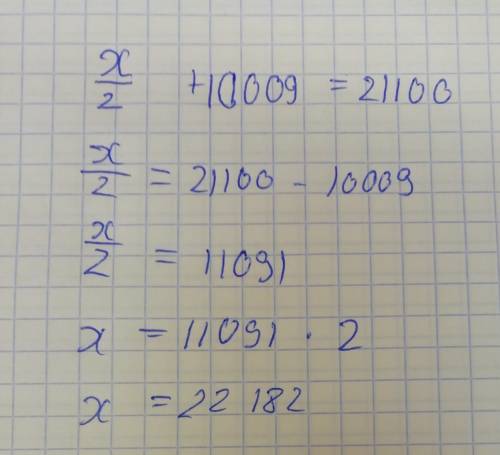 x/2 +10009 = 21100
x/2 = 21100 - 10009
x/2 = 11091
x = 11091 · 2
x = 22 182